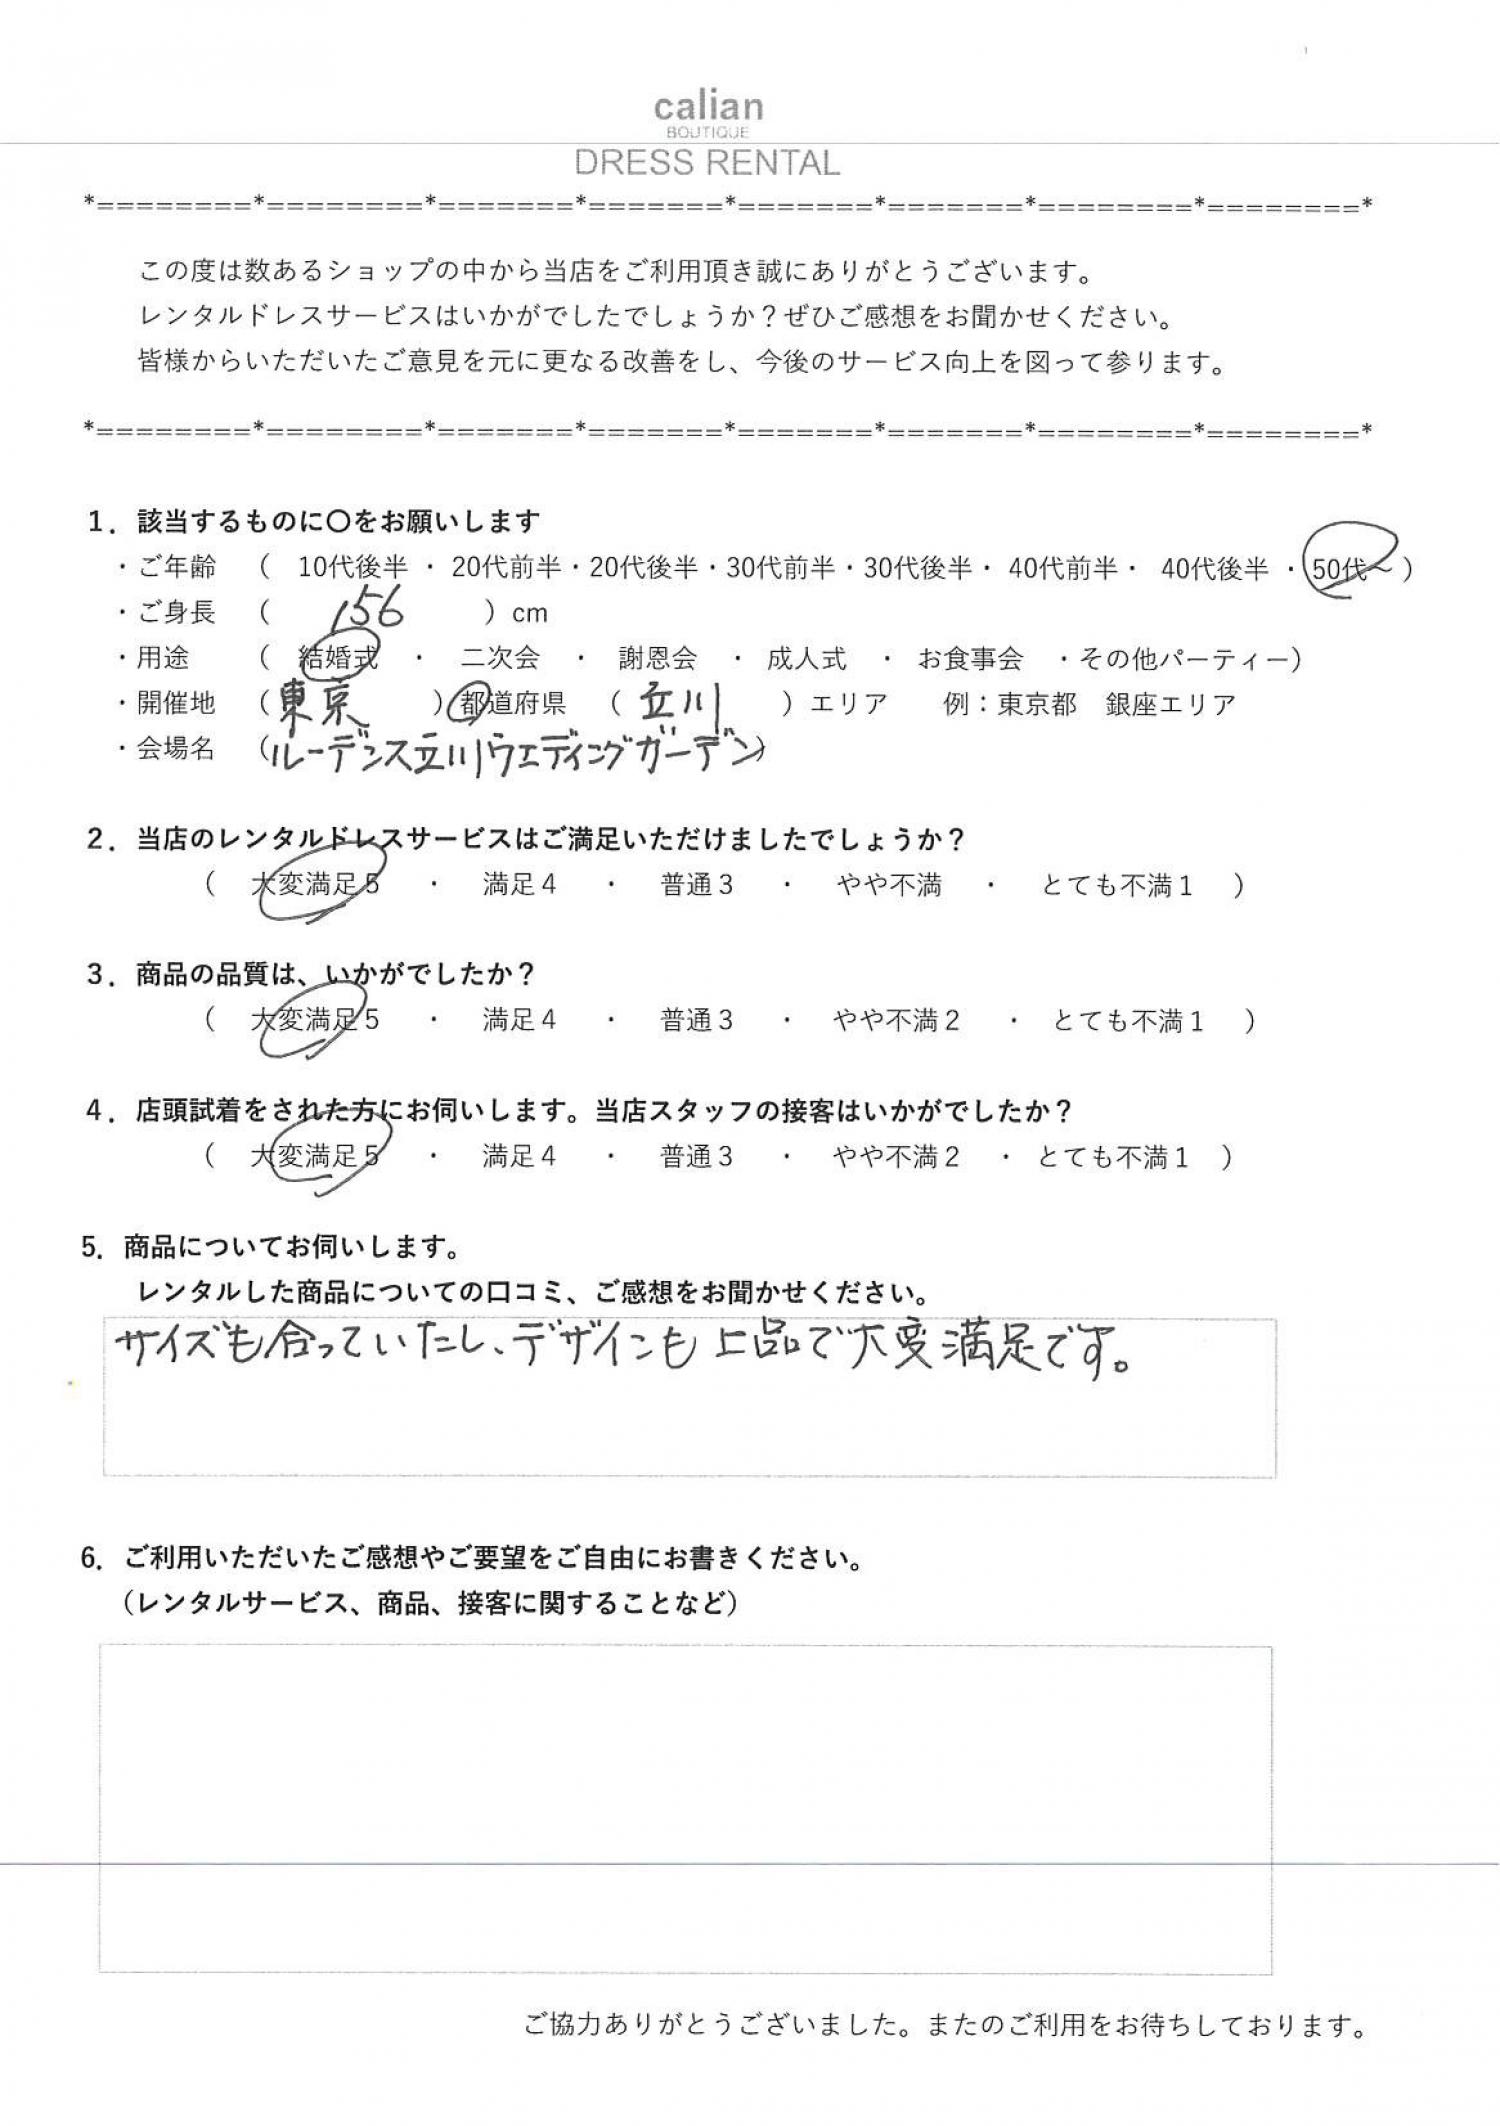 calian
BOUTIQUE
DRESS RENTAL
*========*========*=======*=======*=======*=======*========*========*
この度は数あるショップの中から当店をご利用頂き誠にありがとうございます。
レンタルドレスサービスはいかがでしたでしょうか？ぜひご感想をお聞かせください。
皆様からいただいたご意見を元に更なる改善をし、今後のサービス向上を図って参ります。
*========*========*=======*=======*=======*=======*========*========*
１．該当するものに〇をお願いします
・ご年齢 （ 10代後半 ・ 20代前半・20代後半・30代前半・30代後半・ 40代前半・ 40代後半 ・50代～）
・ご身長 （ 156 ）cm
・用途 （ 結婚式 ・ 二次会 ・ 謝恩会 ・ 成人式 ・ お食事会 ・その他パーティー）
・開催地 （東京 ）都道府県 （ 立川 ）エリア 例：東京都 銀座エリア
・会場名 （ルーデンス立川ウエディングガーデン）
２．当店のレンタルドレスサービスはご満足いただけましたでしょうか？
（ 大変満足５ ・ 満足４ ・ 普通３ ・ やや不満 ・ とても不満１ ）
３．商品の品質は、いかがでしたか？
（ 大変満足５ ・ 満足４ ・ 普通３ ・ やや不満２ ・ とても不満１ ）
４．店頭試着をされた方にお伺いします。当店スタッフの接客はいかがでしたか？
（ 大変満足５ ・ 満足４ ・ 普通３ ・ やや不満２ ・ とても不満１ ）
5．商品についてお伺いします。
レンタルした商品についての口コミ、ご感想をお聞かせください。
サイズも合っていたし、デザインも上品で大変満足です。
6．ご利用いただいたご感想やご要望をご自由にお書きください。
（レンタルサービス、商品、接客に関することなど）
ご協力ありがとうございました。またのご利用をお待ちしております。